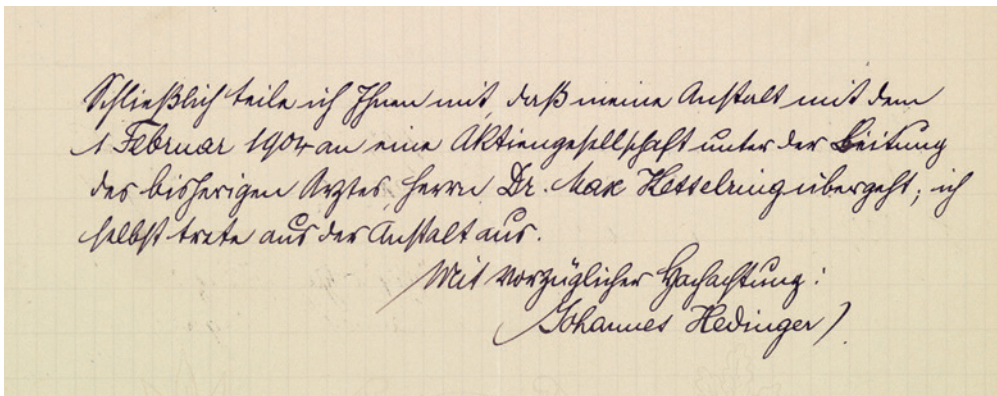 Schließlich teile ich Ihnen mit, daß meine Anstalt mit dem
1 Februar 1904 an eine Aktiengesellschaft unter der Leitung
des bisherigen Arztes, Herrn Dr. Max Hesselring übergeht; ich
selbst trete aus der Anstalt aus.
Mit vorzüglicher Hochachtung:
(Johannes Hedinger)